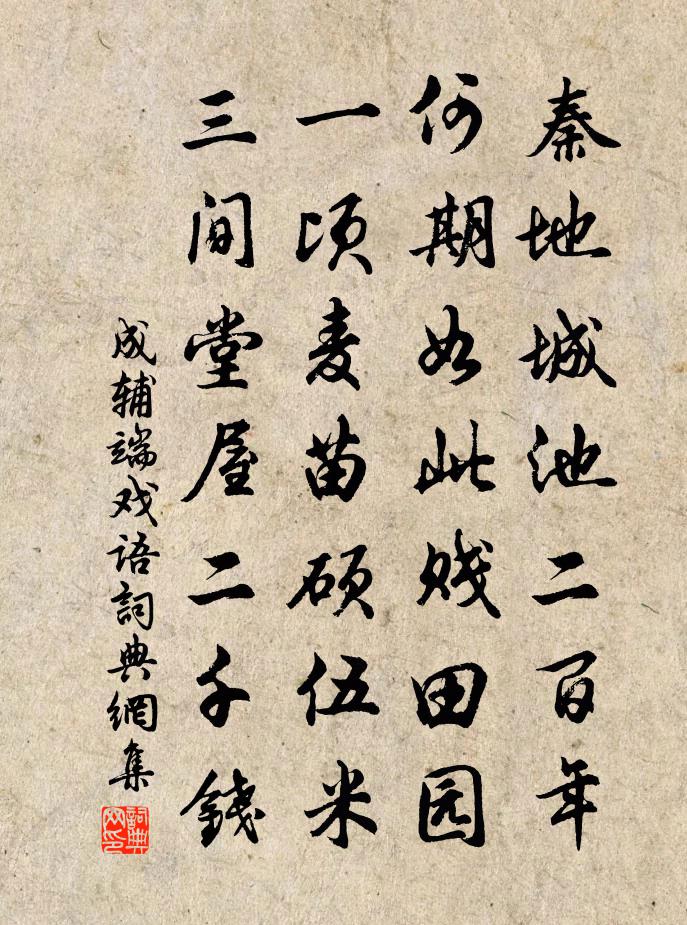 秦地城池二百年
何期如此贱田园
一顷麦苗硕伍米
三间堂屋二千錢
成辅端戏语詞典網集
詞典网印